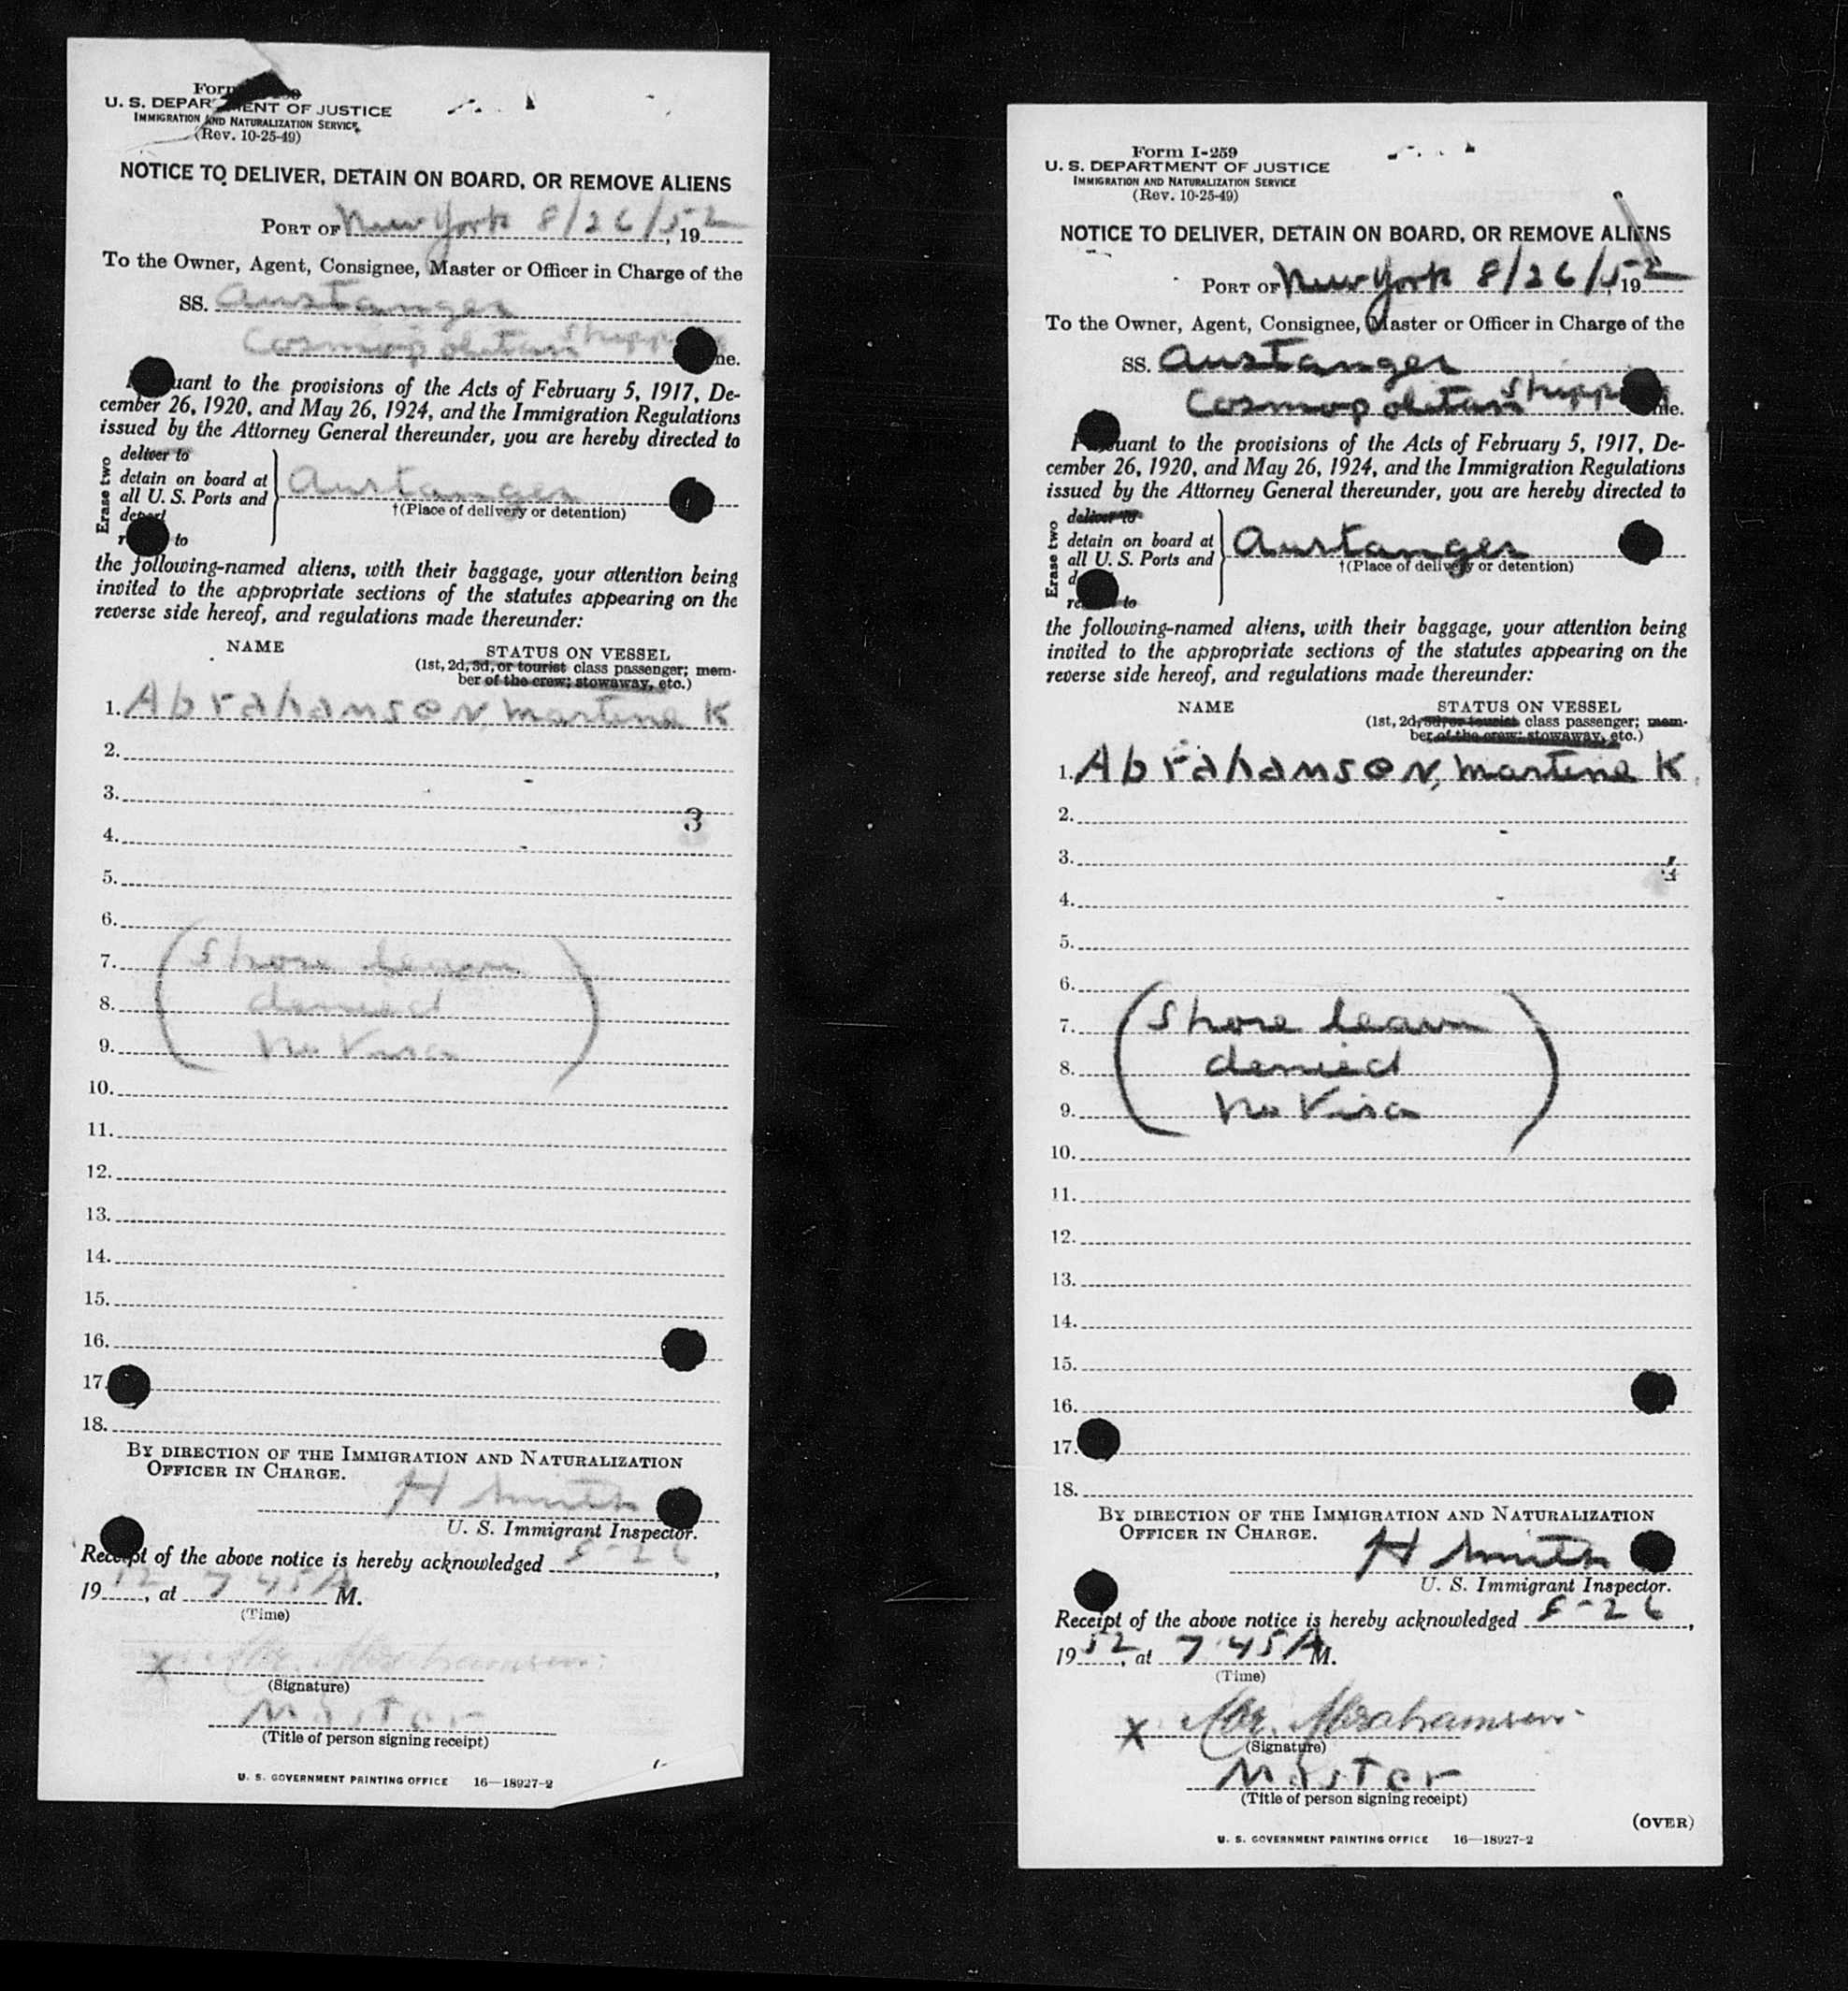 Form
U. S. DEPARTMENT OF JUSTICE
IMMIGRATION AND NATURALIZATION SERVICE
(Rev. 10-25-49)
NOTICE TO DELIVER, DETAIN ON BOARD, OR REMOVE ALIENS
PORT OF New York 8/26/52, 19
To the Owner, Agent, Consignee, Master or Officer in Charge of the
SS. Austanger
Cosmopolitan Shipping
Pursuant to the provisions of the Acts of February 5, 1917, De-
cember 26, 1920, and May 26, 1924, and the Immigration Regulations
issued by the Attorney General thereunder, you are hereby directed to
Erase two
deliver to
detain on board at
all U. S. Ports and
deport
to
Austanger
†(Place of delivery or detention)
the following-named aliens, with their baggage, your attention being
invited to the appropriate sections of the statutes appearing on the
reverse side hereof, and regulations made thereunder:
NAME STATUS ON VESSEL
(1st, 2d, 3d, or tourist class passenger; mem-
ber of the crew; stowaway, etc.)
1. Abrahamsen, Martine K
2.
3.
3
4.
5.
6.
7. (Shore leave
8. denied
9. no Visa)
10.
11.
12.
13.
14.
15.
16.
17.
18.
BY DIRECTION OF THE IMMIGRATION AND NATURALIZATION
OFFICER IN CHARGE.
H Smith
U. S. Immigrant Inspector.
Receipt of the above notice is hereby acknowledged 8-26,
1952, at 7:45 A M.
(Time)
X Abrahamsen
(Signature)
Master
(Title of person signing receipt)
U. S. GOVERNMENT PRINTING OFFICE 16—18927-2
Form I-259
U. S. DEPARTMENT OF JUSTICE
IMMIGRATION AND NATURALIZATION SERVICE
(Rev. 10-25-49)
NOTICE TO DELIVER, DETAIN ON BOARD, OR REMOVE ALIENS
PORT OF New York 8/26/52, 19
To the Owner, Agent, Consignee, Master or Officer in Charge of the
SS. Austanger
Cosmopolitan Shipping
Pursuant to the provisions of the Acts of February 5, 1917, De-
cember 26, 1920, and May 26, 1924, and the Immigration Regulations
issued by the Attorney General thereunder, you are hereby directed to
Erase two
deliver to
detain on board at
all U. S. Ports and
to
Austanger
†(Place of delivery or detention)
the following-named aliens, with their baggage, your attention being
invited to the appropriate sections of the statutes appearing on the
reverse side hereof, and regulations made thereunder:
NAME STATUS ON VESSEL
(1st, 2d, 3d, or tourist class passenger; mem-
ber of the crew; stowaway, etc.)
1. Abrahamsen, Martine K
2.
3.
4.
5.
6.
7. (Shore leave
8. denied
9. no Visa)
10.
11.
12.
13.
14.
15.
16.
17.
18.
BY DIRECTION OF THE IMMIGRATION AND NATURALIZATION
OFFICER IN CHARGE.
H Smith
U. S. Immigrant Inspector.
Receipt of the above notice is hereby acknowledged 8-26,
1952, at 7:45 A M.
(Time)
X Abrahamsen
(Signature)
Master
(Title of person signing receipt)
(OVER)
U. S. GOVERNMENT PRINTING OFFICE 16—18927-2